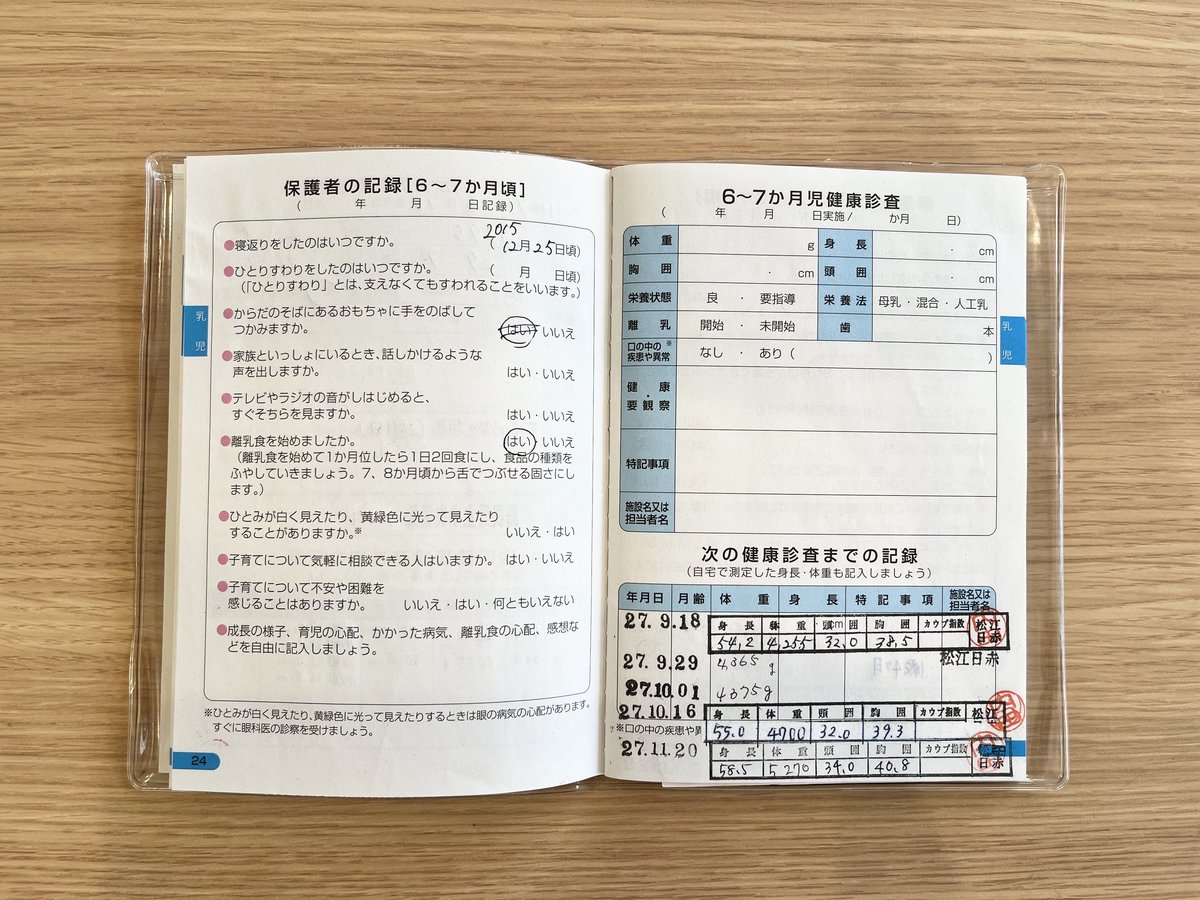 保護者の記録［6～7か月頃］
（　　年　　月　　日記録）
●寝返りをしたのはいつですか。
2015
（12月25日頃）
●ひとりすわりをしたのはいつですか。　（　　月　　日頃）
（「ひとりすわり」とは、支えなくてもすわれることをいいます。）
●からだのそばにあるおもちゃに手をのばして
つかみますか。　はい・いいえ
●家族といっしょにいるとき、話しかけるような
声を出しますか。　はい・いいえ
●テレビやラジオの音がしはじめると、
すぐそちらを見ますか。　はい・いいえ
●離乳食を始めましたか。　はい・いいえ
（離乳食を始めて1か月位したら1日2回食にし、食品の種類を
ふやしていきましょう。7、8か月頃から舌でつぶせる固さにし
ます。）
●ひとみが白く見えたり、黄緑色に光って見えたり
することがありますか。※　いいえ・はい
●子育てについて気軽に相談できる人はいますか。　はい・いいえ
●子育てについて不安や困難を
感じることはありますか。　いいえ・はい・何ともいえない
●成長の様子、育児の心配、かかった病気、離乳食の心配、感想な
どを自由に記入しましょう。
※ひとみが白く見えたり、黄緑色に光って見えたりするときは眼の病気の心配があります。
すぐに眼科医の診察を受けましょう。
乳児
24
6～7か月児健康診査
（　　年　　月　　日実施/　　か月　　日）
体重　g　身長　・　cm
胸囲　・　cm　頭囲　・　cm
栄養状態　良・要指導　栄養法　母乳・混合・人工乳
離乳　開始・未開始　歯　本
口の中の※
疾患や異常　なし・あり（　　）
健康・
要観察
特記事項
施設名又は
担当者名
乳児
次の健康診査までの記録
（自宅で測定した身長・体重も記入しましょう）
年月日　月齢　体重　身長　特記事項　施設名又は担当者名
27.9.18　身長　体重　頭囲　胸囲　カウプ指数　松江日赤
54.2　4,255　32.0　38.5
27.9.29　4,365 g　松江日赤
27.10.01　4375g
27.10.16　身長　体重　頭囲　胸囲　カウプ指数　松江
55.0　4700　32.0　39.3
※口の中の疾患や異
27.11.20　身長　体重　頭囲　胸囲　カウプ指数　松江日赤
58.5　5270　34.0　40.8